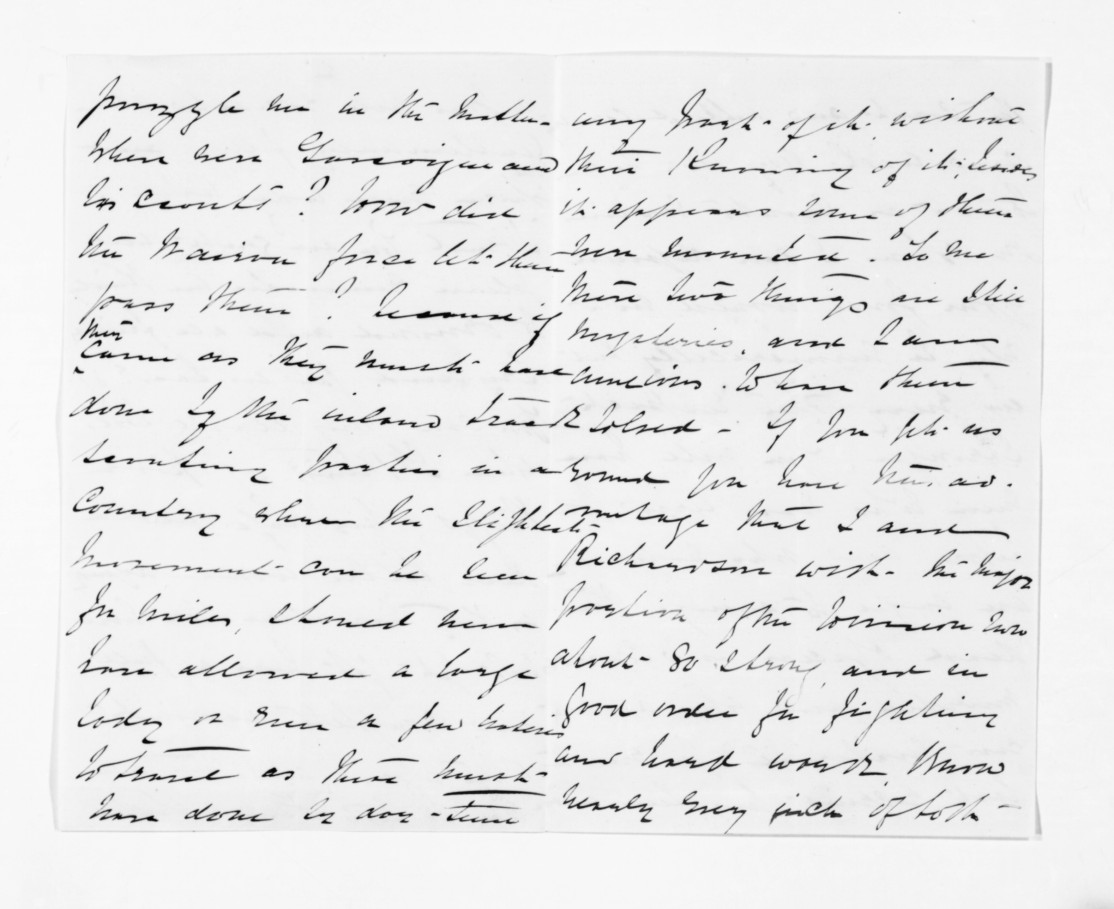 puzzle me in the matter.
Where were Gascoigne and
his scouts? How did
the Wairoa force let them
pass them? because if
they
came as they must have
done by the inland track
scouting parties in a
country where the slightest
movement can be seen
for miles, should never
have allowed a large
body or even a few natives
to travel as these must
have done by day-time
any part of it. without
their knowing of it; besides
it appears some of them
were mounted. To me
these two things are still
mysteries, and I am
anxious to have them
solved - If you let us
round you have this ad-
vantage that I and
Richardson with the major
portion of the Division now
about 80 strong, and in
good order for fighting
and hard work know
nearly every inch of both